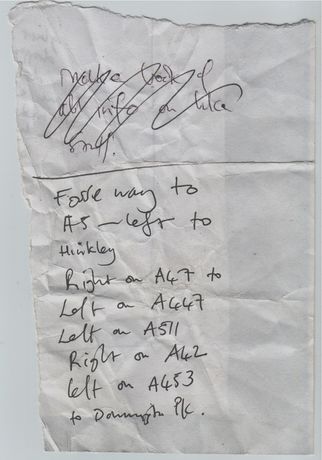 make a
info on
Fosse way to
A5 - left to
Hinkley
Right on A47 to
Left on A447
Left on A511
Right on A42
left on A453
to Donnington Pk.